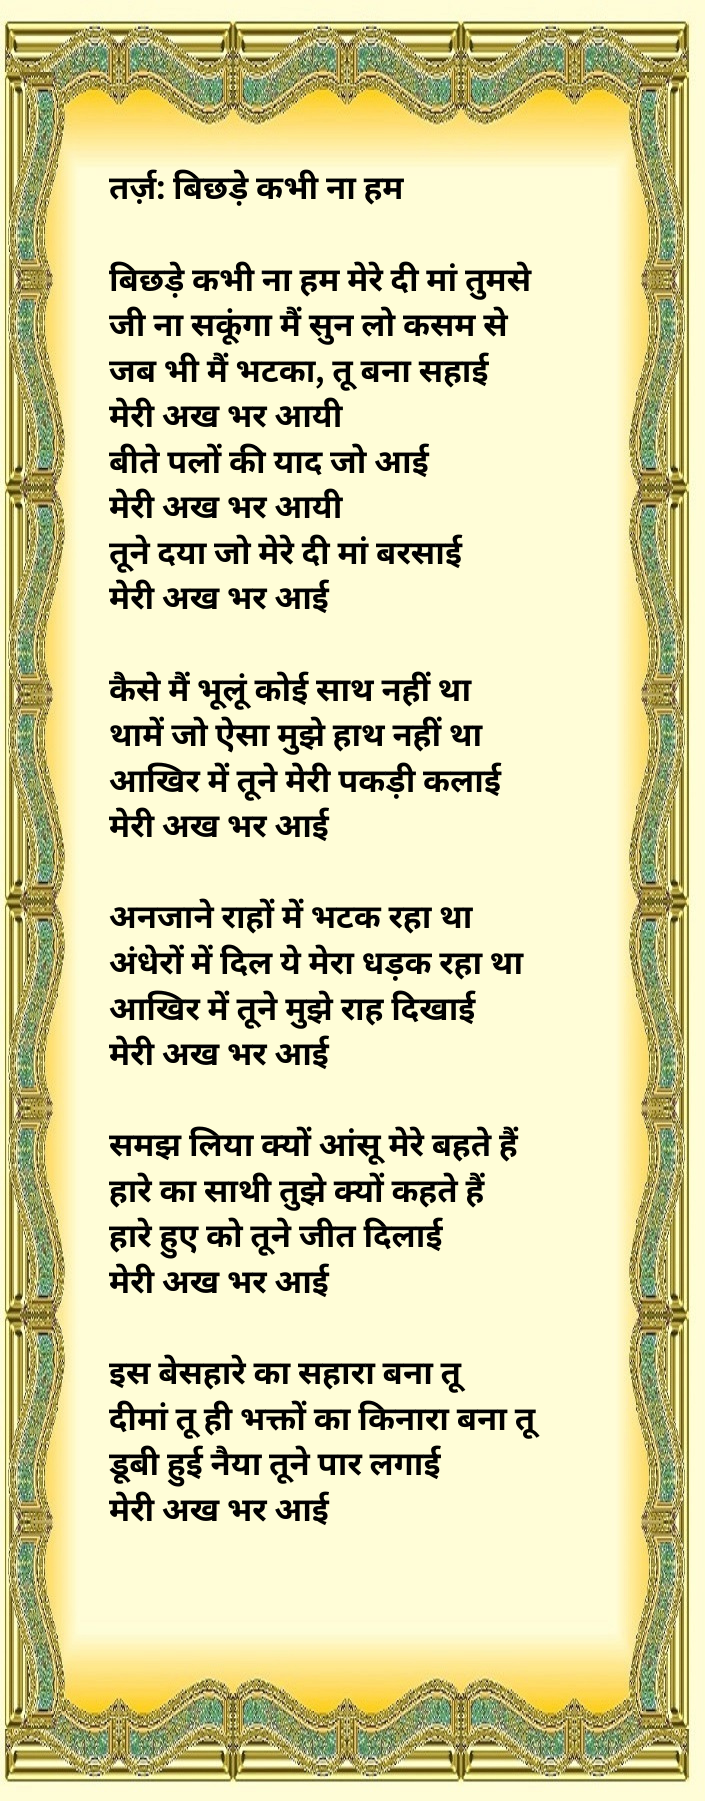 तर्ज़: बिछड़े कभी ना हम
बिछड़े कभी ना हम मेरे दी मां तुमसे
जी ना सकूंगा मैं सुन लो कसम से
जब भी मैं भटका, तू बना सहाई
मेरी अख भर आयी
बीते पलों की याद जो आई
मेरी अख भर आयी
तूने दया जो मेरे दी मां बरसाई
मेरी अख भर आई
कैसे मैं भूलूं कोई साथ नहीं था
थामें जो ऐसा मुझे हाथ नहीं था
आखिर में तूने मेरी पकड़ी कलाई
मेरी अख भर आई
अनजाने राहों में भटक रहा था
अंधेरों में दिल ये मेरा धड़क रहा था
आखिर में तूने मुझे राह दिखाई
मेरी अख भर आई
समझ लिया क्यों आंसू मेरे बहते हैं
हारे का साथी तुझे क्यों कहते हैं
हारे हुए को तूने जीत दिलाई
मेरी अख भर आई
इस बेसहारे का सहारा बना तू
दीमां तू ही भक्तों का किनारा बना तू
डूबी हुई नैया तूने पार लगाई
मेरी अख भर आई